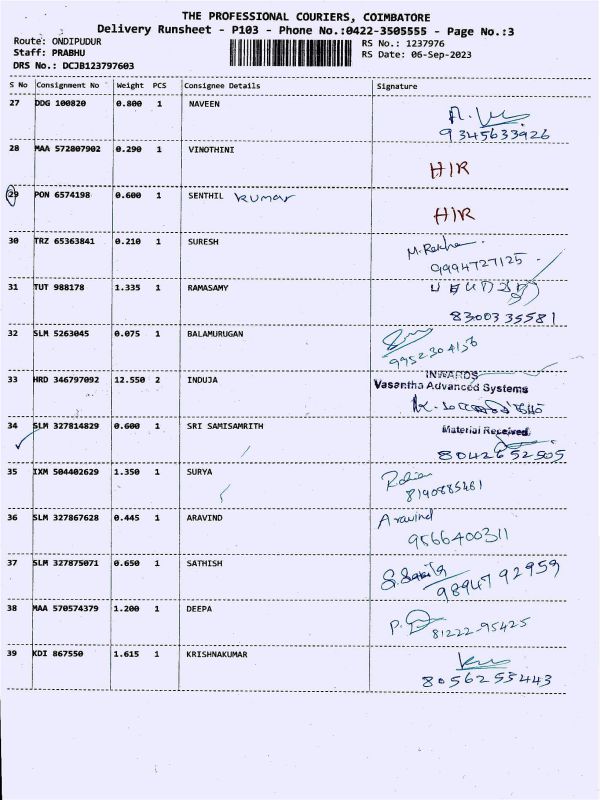 THE PROFESSIONAL COURIERS, COIMBATORE
Delivery Runsheet - P103 - Phone No.:0422-3505555 - Page No.:3
Route: ONDIPUDUR RS No.: 1237976
Staff: PRABHU RS Date: 06-Sep-2023
DRS No.: DCJB123797603
S No Consignment No Weight PCS Consignee Details Signature
27 DDG 100820 0.800 1 NAVEEN
9345633926
28 MAA 572807902 0.290 1 VINOTHINI HIR
29 PON 6574198 0.600 1 SENTHIL kumar HIR
30 TRZ 65363841 0.210 1 SURESH M. Rekha
9994727125
31 TUT 988178 1.335 1 RAMASAMY
8300335581
32 SLM 5263045 0.075 1 BALAMURUGAN
9952304156
INWARDS
33 HRD 346797092 12.550 2 INDUJA Vasantha Advanced Systems
34 SLM 327814829 0.600 1 SRI SAMISAMRITH Material Received
8042652505
35 IXM 504402629 1.350 1 SURYA
8190885461
36 SLM 327867628 0.445 1 ARAVIND Aravind
9566400311
37 SLM 327875071 0.650 1 SATHISH
98947 92959
38 MAA 570574379 1.200 1 DEEPA
81222-95425
39 KDI 867550 1.615 1 KRISHNAKUMAR
8056253443